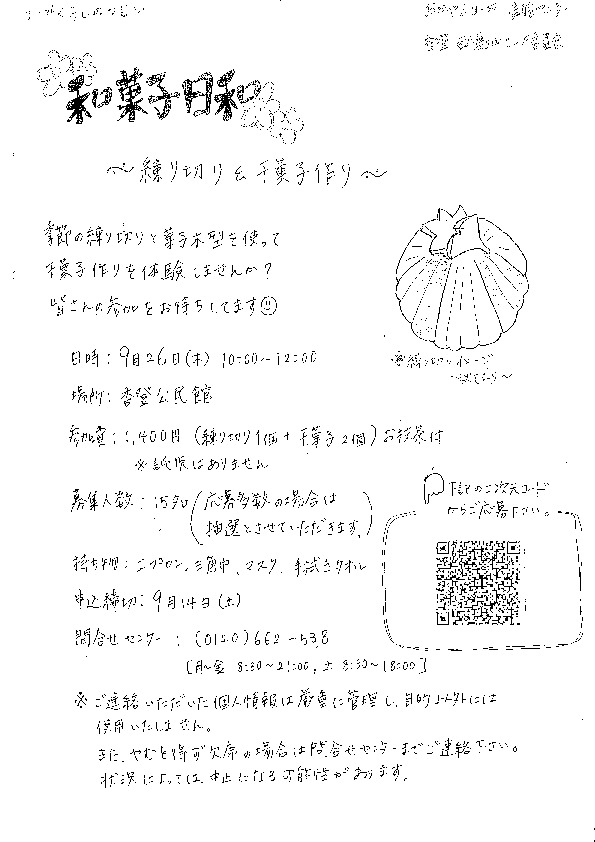 和菓子日和
〜練り切り&干菓子作り〜
季節の練り切りと菓子木型を使って
干菓子作りを体験しませんか?
皆さんの参加をお待ちしてます
日時:9月26日(木) 10:00〜12:00
場所:香登公民館
参加費:1,400円 (練り切り1個+干菓子2個) お抹茶付
※託児はありません
募集人数:15名(応募多数の場合は
抽選とさせていただきます。)
下記の二次元コード
からご応募下さい。
持ち物:エプロン、三角巾、マスク、手拭きタオル
申込締切:9月14日(土)
問合せセンター:(0120)662-538
[月〜金 8:30〜21:00、土 8:30〜18:00]
※ご連絡いただいた個人情報は厳重に管理し、目的以外には
使用いたしません。
また、やむを得ず欠席の場合は問合せセンターまでご連絡下さい。
状況によっては中止になる可能性があります。